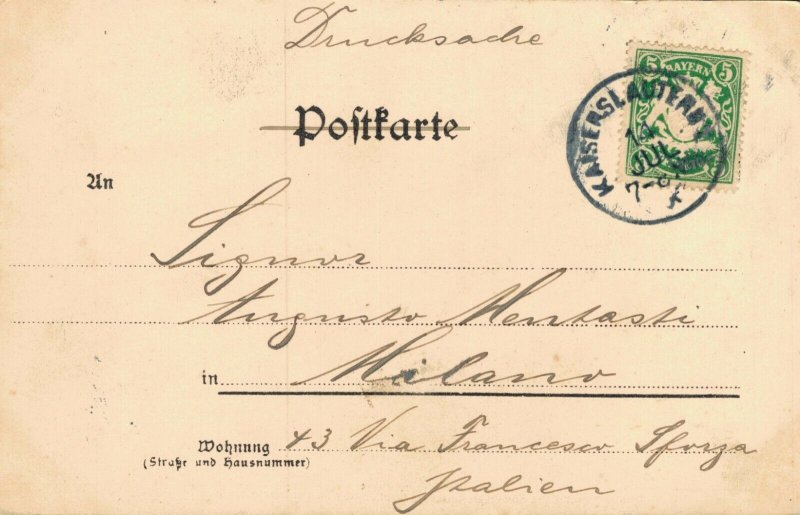 Drucksache
5 BAYERN 5
Postkarte
KAISERSLAUTERN
14
JUL
7-8
An
Signor
Augusto Mentasti
in Milano
Wohnung 43 Via Francesco Sforza
(Straße und Hausnummer)
Italien